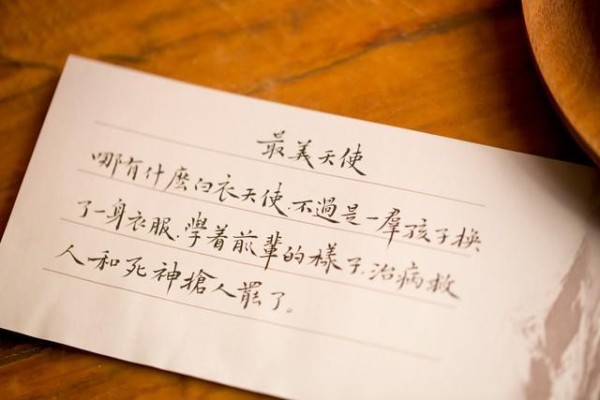 最美天使
哪有什麽白衣天使.不過是一羣孩子換
了一身衣服.學着前輩的樣子.治病救
人和死神搶人罷了。